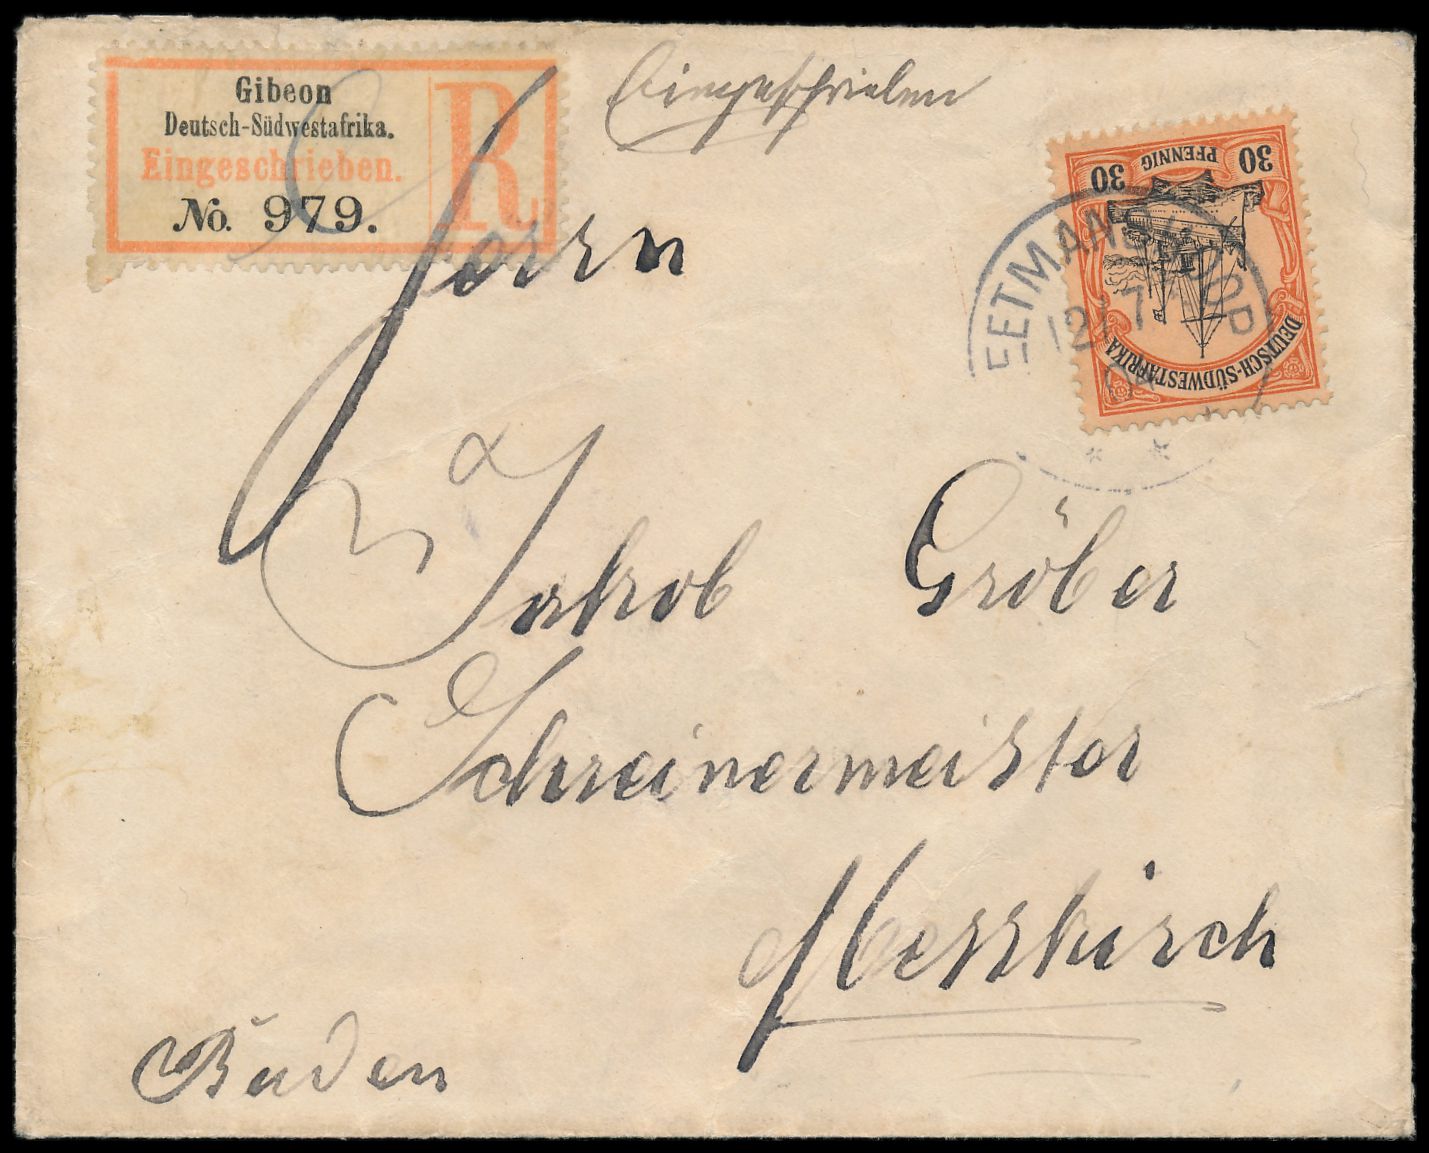 Gibeon
Deutsch-Südwestafrika.
Eingeschrieben.
No. 979.
R
Eingeschrieben
30 PFENNIG 30
DEUTSCH-SÜDWESTAFRIKA
EETMANSHOOP
12/7
Herrn
Jakob Gröber
Schreinermeister
Messkirch
Baden